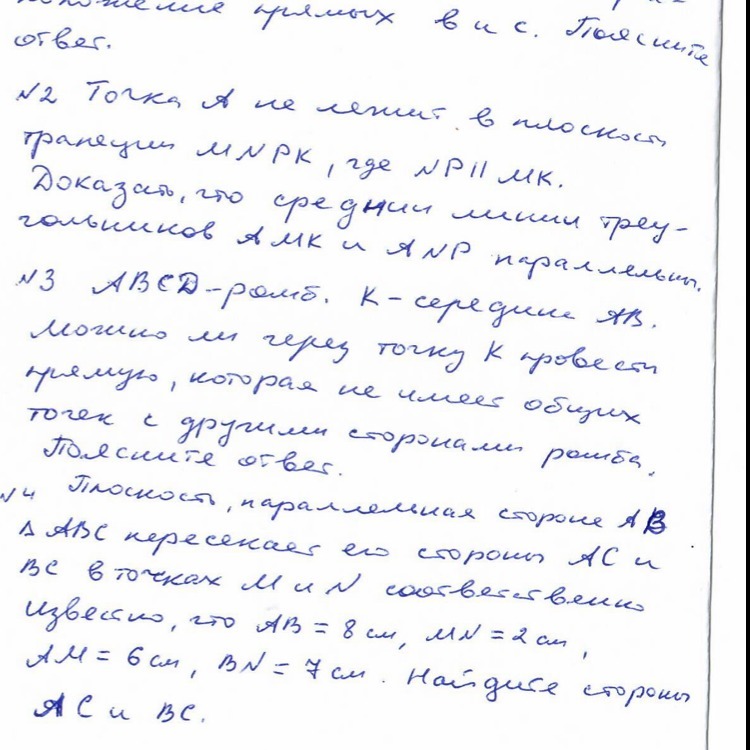 прямых в и с. Поясните
ответ.
№2 Точка А не лежит в плоскости
трапеции MNPK, где NP||MK.
Доказать, что средние линии треу-
гольников AMK и ANP параллельны.
№3 ABCD-ромб. К-середина АВ.
Можно ли через точку К провести
прямую, которая не имеет общих
точек с другими сторонами ромба.
Поясните ответ.
№4 Плоскость, параллельная стороне АВ
Δ АВС пересекает его стороны АС и
ВС в точках M и N соответственно
Известно, что АВ = 8 см, MN = 2 см,
АМ = 6 см, BN = 7 см. Найдите стороны
АС и ВС.